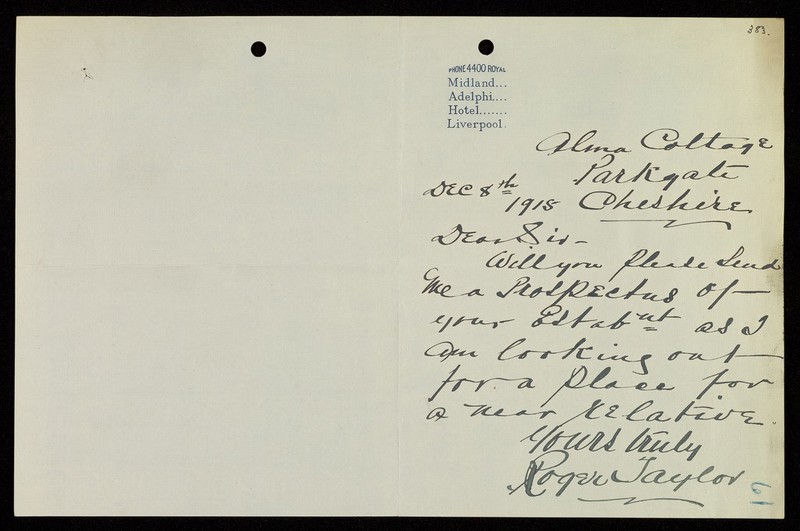 383.
PHONE 4400 ROYAL
Midland...
Adelphi....
Hotel.......
Liverpool.
Alma Cottage
Parkgate
Dec 8th Cheshire
1918
Dear Sir -
Will you please send
me a Prospectus of
your Estabnt as I
am looking out
for a place for
a near relative.
Yours truly
Roger Taylor
61